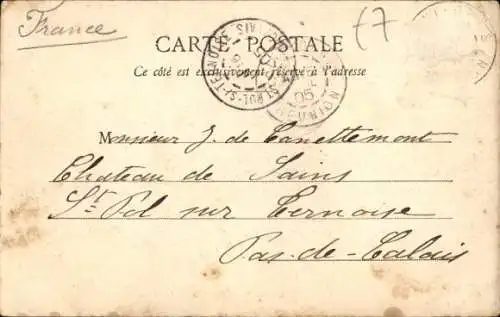 France
CARTE POSTALE
Ce côté est exclusivement réservé à l'adresse
Monsieur J. de Canettemont
Chateau de Sains
St Pol sur Ternoise
Pas-de-Calais
05